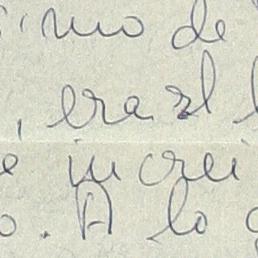 simo de
, era el
e increi
o. A lo